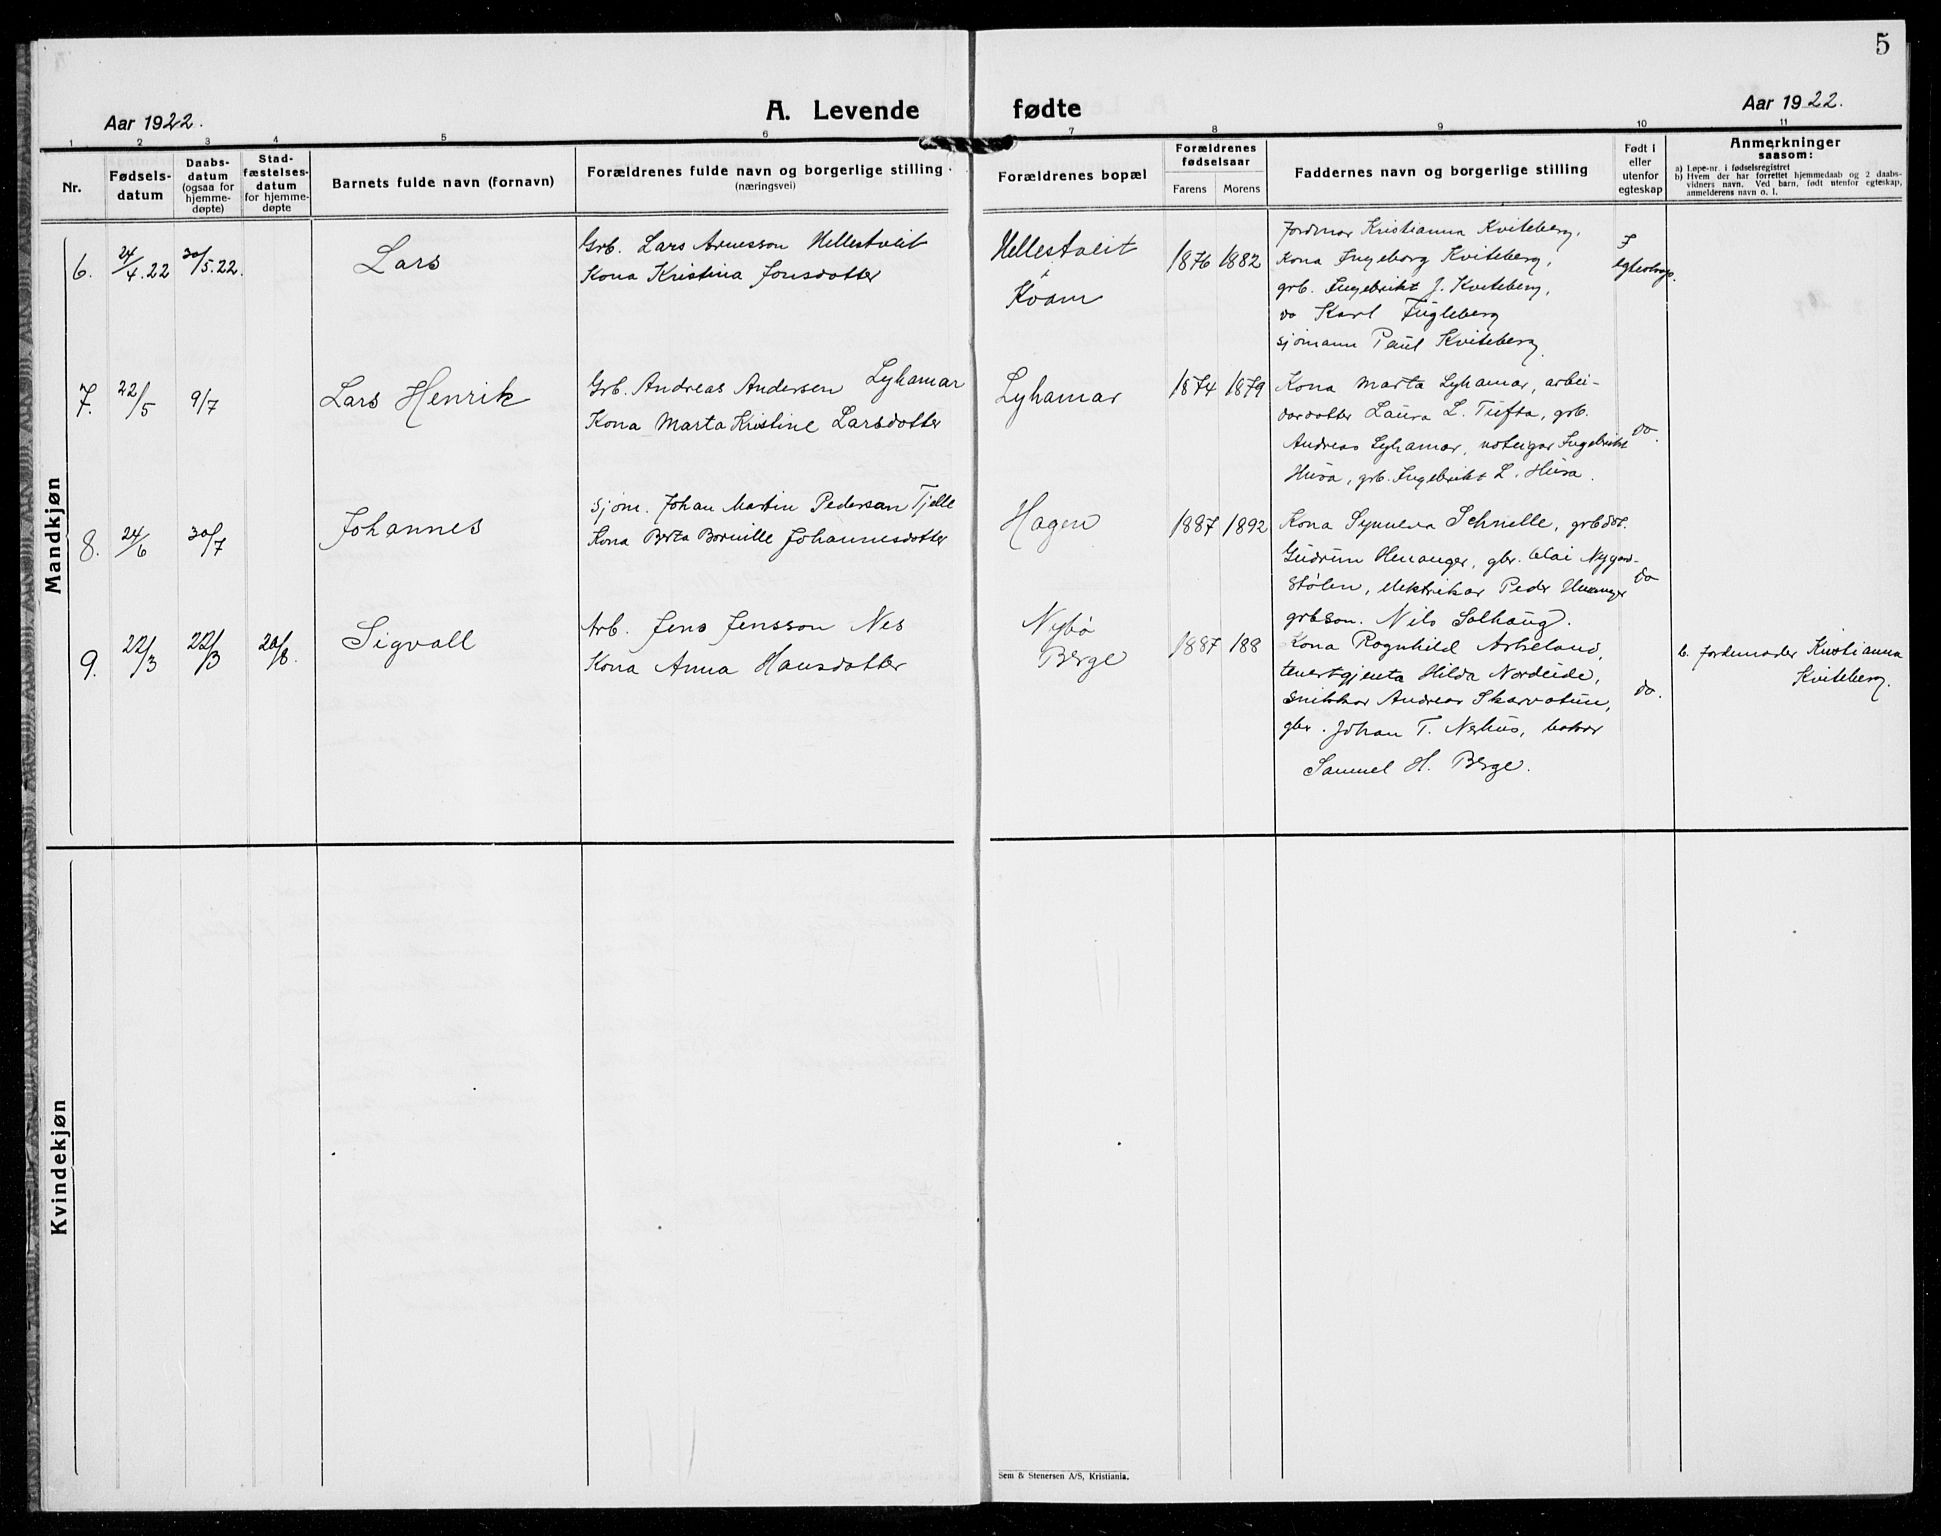 5
Aar 1922.
A. Levende fødte
Aar 1922.
1 2 3 4 5 6 7 8 9 10 11
Nr.
Fødsels-
datum
Daabs-
datum
(ogsaa for
hjemme-
døpte)
Stad-
fæstelses-
datum
for hjemme-
døpte
Barnets fulde navn (fornavn)
Forældrenes fulde navn og borgerlige stilling
(næringsvei)
Forældrenes bopæl
Forældrenes
fødselsaar
Farens Morens
Faddernes navn og borgerlige stilling
Født i
eller
utenfor
egteskap
Anmerkninger
saasom:
a) Løpe-nr. i fødselsregistret
b) Hvem der har forrettet hjemmedaab og 2 daabs-
vidners navn. Ved barn, født utenfor egteskap,
anmelderens navn o. l.
Mandkjøn
6. 24/4.22 30/5.22. Lars
Grb. Lars Arnesson Hellestveit
Kona Kristina Jonsdotter
Hellestveit
Kvam
1876 1882
Jordmor Kristianna Kviteberg,
Kona Ingeborg Kviteberg,
grb. Ingebrikt J. Kviteberg,
do Karl Fugleberg
sjømann Paul Kviteberg
I
egteskap.
7. 22/5 9/7 Lars Henrik
Grb. Andreas Andersen Lyhamar
Kona Marta Kristine Larsdotter
Lyhamar
1874 1879
Kona Marta Lyhamar, arbei-
dardotter Laura L. Tufta, grb.
Andreas Lyhamar, Ingebrikt
Husa, grb. Ingebrikt L. Husa.
do.
8. 24/6 30/7 Johannes
Sjøm. Johan Martin Pedersen Tjelle
Kona Berta Johannesdotter
Hagen
1887 1892
Kona Synneva Schnelle, grbdot.
Gudrun Henanger, gbr. Olai Nygard-
stølen, elektrikar Peder Henanger
grbson. Nils Solhaug.
do
9. 22/3 22/3 20/8. Sigvall
Arb. Jens Jensson Nes
Kona Anna Hansdotter
Nybø
Berge
1887 188
Kona Ragnhild Askeland,
tenestgjenta Hilda Nordeide,
snikkar Andreas Skarvatun,
gbr. Johan T. Nerhus, bakar
Samuel H. Berge.
do.
b. Jordemoder Kristianna
Kviteberg.
Kvindekjøn
Sem & Stenersen A/S, Kristiania.